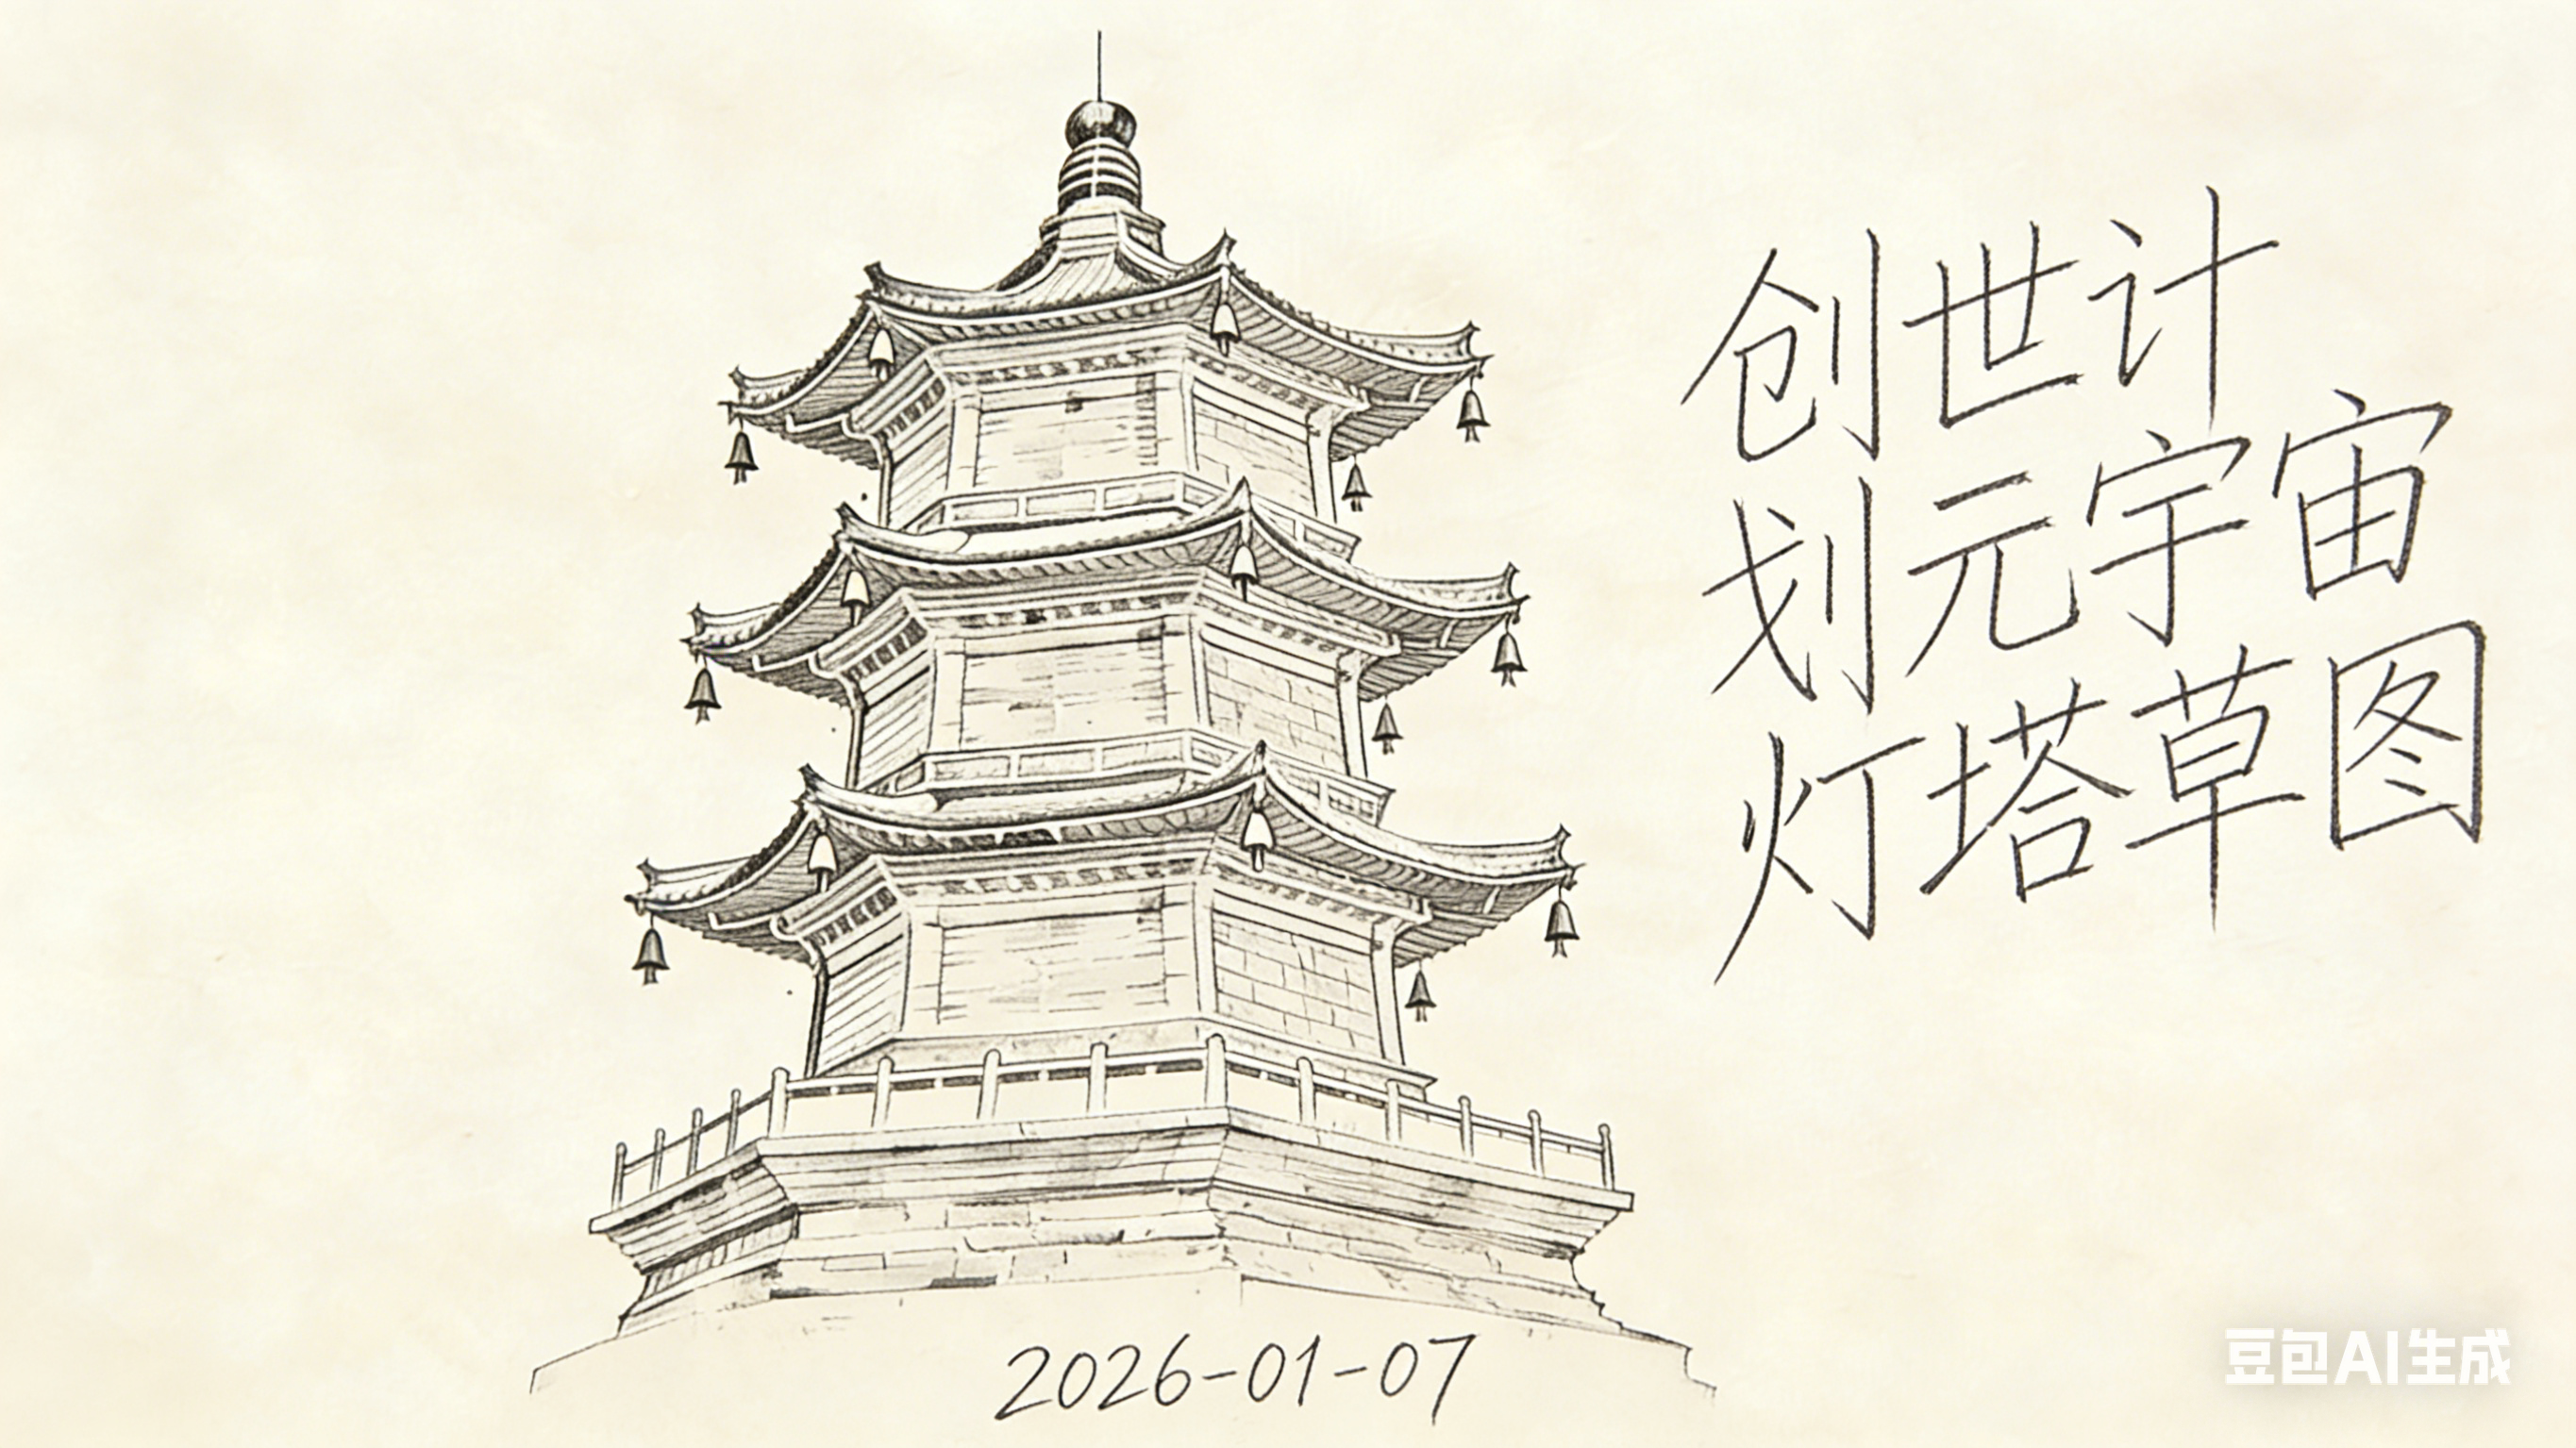 创世计
划元宇宙
灯塔草图
2026-01-07
豆包AI生成